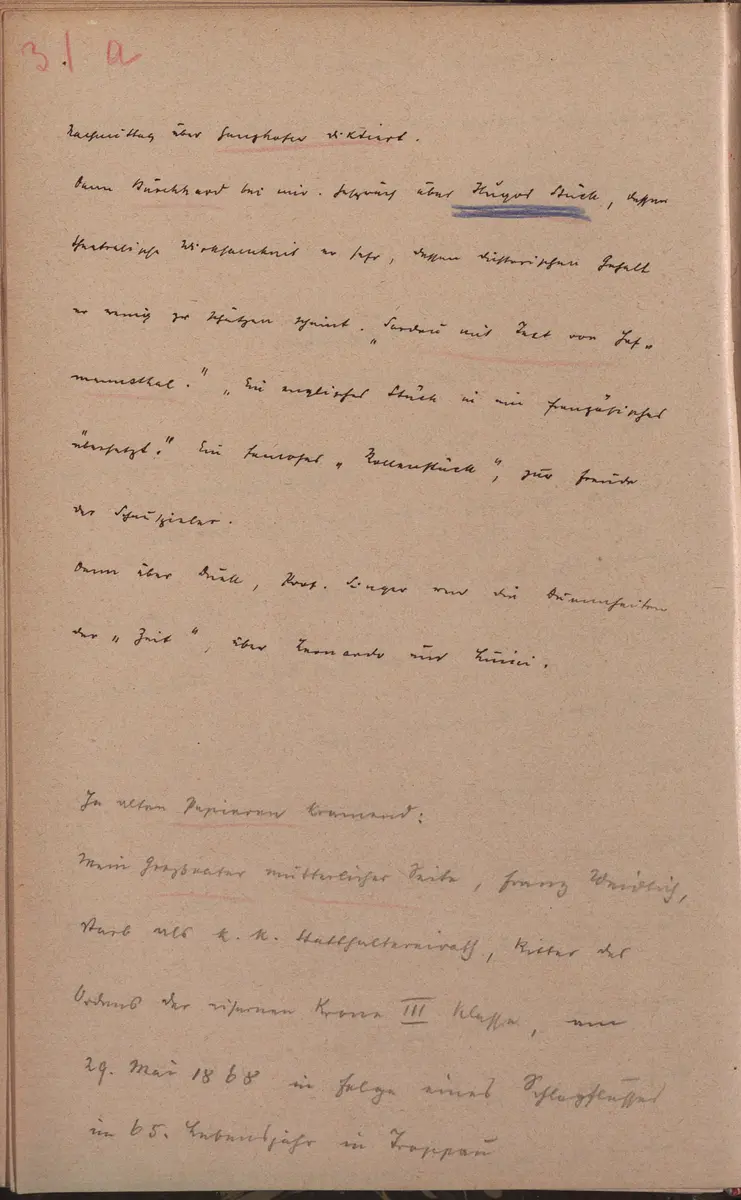 31 a
Nachmittag über Ganghofer diktiert.
Dann Burckhard bei mir. Gespräch über Hugos Stück, dessen
theatralische Wirksamkeit er sehr, dessen dichterischen Gehalt
er wenig zu schätzen scheint. „Sardou mit Text von Hof-
mannsthal." „Ein englisches Stück in ein französisches
übersetzt." Ein famoses „Rollenstück", zur Freude
der Schauspieler.
Dann über Duell, Prof. Singer und die Dummheiten
der „Zeit", über Leonardo und Luini.
In alten Papieren kramend:
Mein Großvater mütterlicher Seite, Franz Weidlich,
starb als k. k. Statthaltereirath, Ritter des
Ordens der eisernen Krone III Klasse, am
29. Mai 1868 in Folge eines Schlagflusses
im 65. Lebensjahr in Troppau